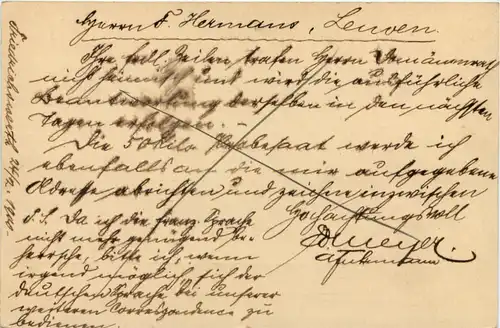 Herrn F. Hermans, Leuven.
Ihre frdl. Zeilen trafen Herrn
nicht heimisch und wird die ausführliche
Beantwortung derselben in den nächsten
Tagen erfolgen. —
Die 50 Kilo Probesaat werde ich
ebenfalls an die mir aufgegebene
Adresse abrichten und zeichne inzwischen
Hochachtungsvoll
P.S. Da ich die franz. Sprache
nicht mehr genügend be-
herrsche, bitte ich, wenn
irgend möglich, sich der
deutschen Sprache bei unserer
weiteren Correspondence zu
bedienen.